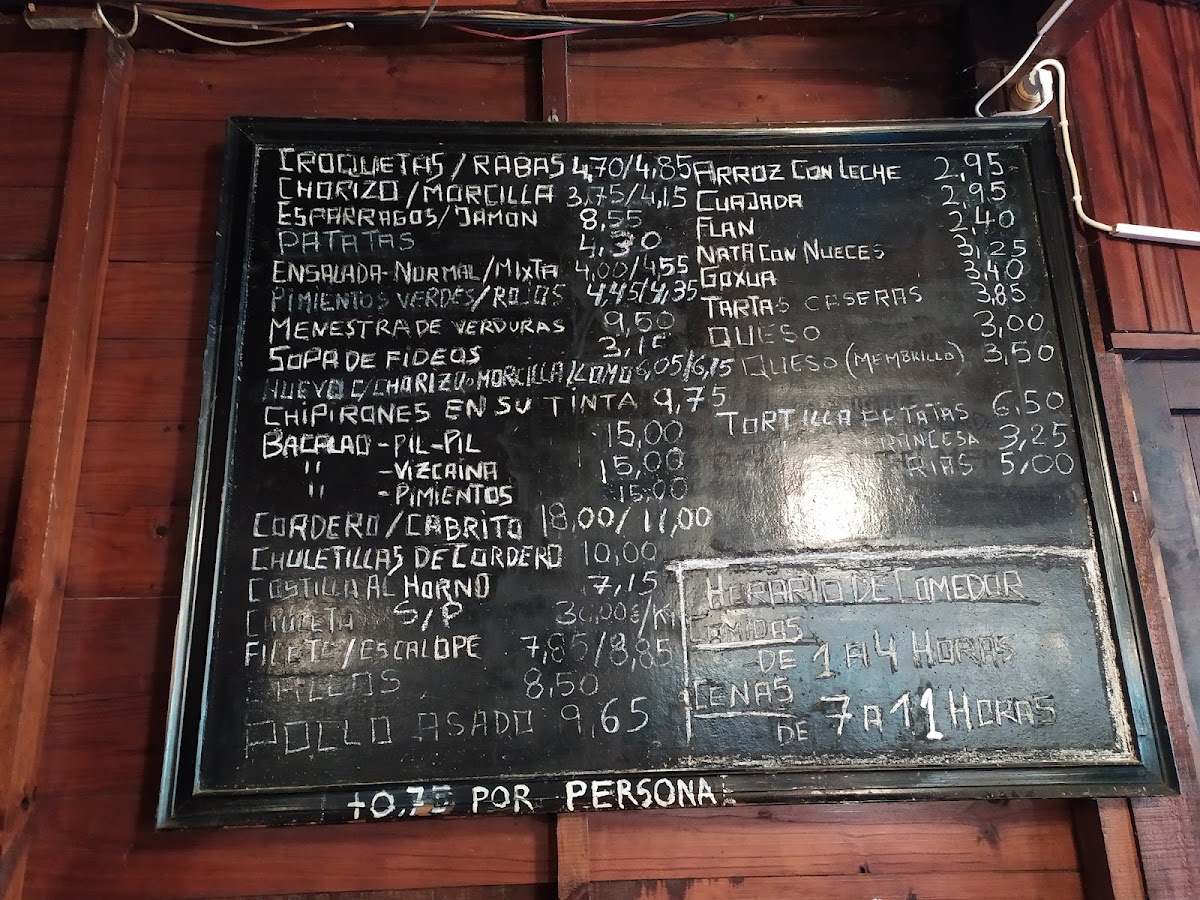 CROQUETAS/RABAS 4,70/4,85
CHORIZO/MORCILLA 3,75/4,15
ESPARRAGOS/JAMON 8,55
PATATAS
ENSALADA-NORMAL/MIXTA 4,00/4,55
PIMIENTOS VERDES/ROJOS 4,45/4,35
MENESTRA DE VERDURAS 9,50
SOPA DE FIDEOS 3,15
HUEVO C/CHORIZO O MORCILLA/LOMO 6,05/6,15
CHIPIRONES EN SU TINTA 9,75
BACALAO-PIL-PIL 15,00
" -VIZCAINA 15,00
" -PIMIENTOS 15,00
CORDERO/CABRITO 18,00/11,00
CHULETILLAS DE CORDERO 10,00
COSTILLA AL HORNO 7,15
CHULETA S/P
FILETE/ESCALOPE 7,85/8,85
CALLOS 8,50
POLLO ASADO 9,65
ARROZ CON LECHE 2,95
CUAJADA 2,95
FLAN 2,40
NATA CON NUECES 3,25
GOXUA 3,40
TARTAS CASERAS 3,85
QUESO 3,00
QUESO (MEMBRILLO) 3,50
TORTILLA PATATAS 6,50
FRANCESA 3,25
5,00
HORARIO DE COMEDOR
COMIDAS
DE 1 A 4 HORAS
CENAS
DE 7 A 11 HORAS
+0,75 POR PERSONA